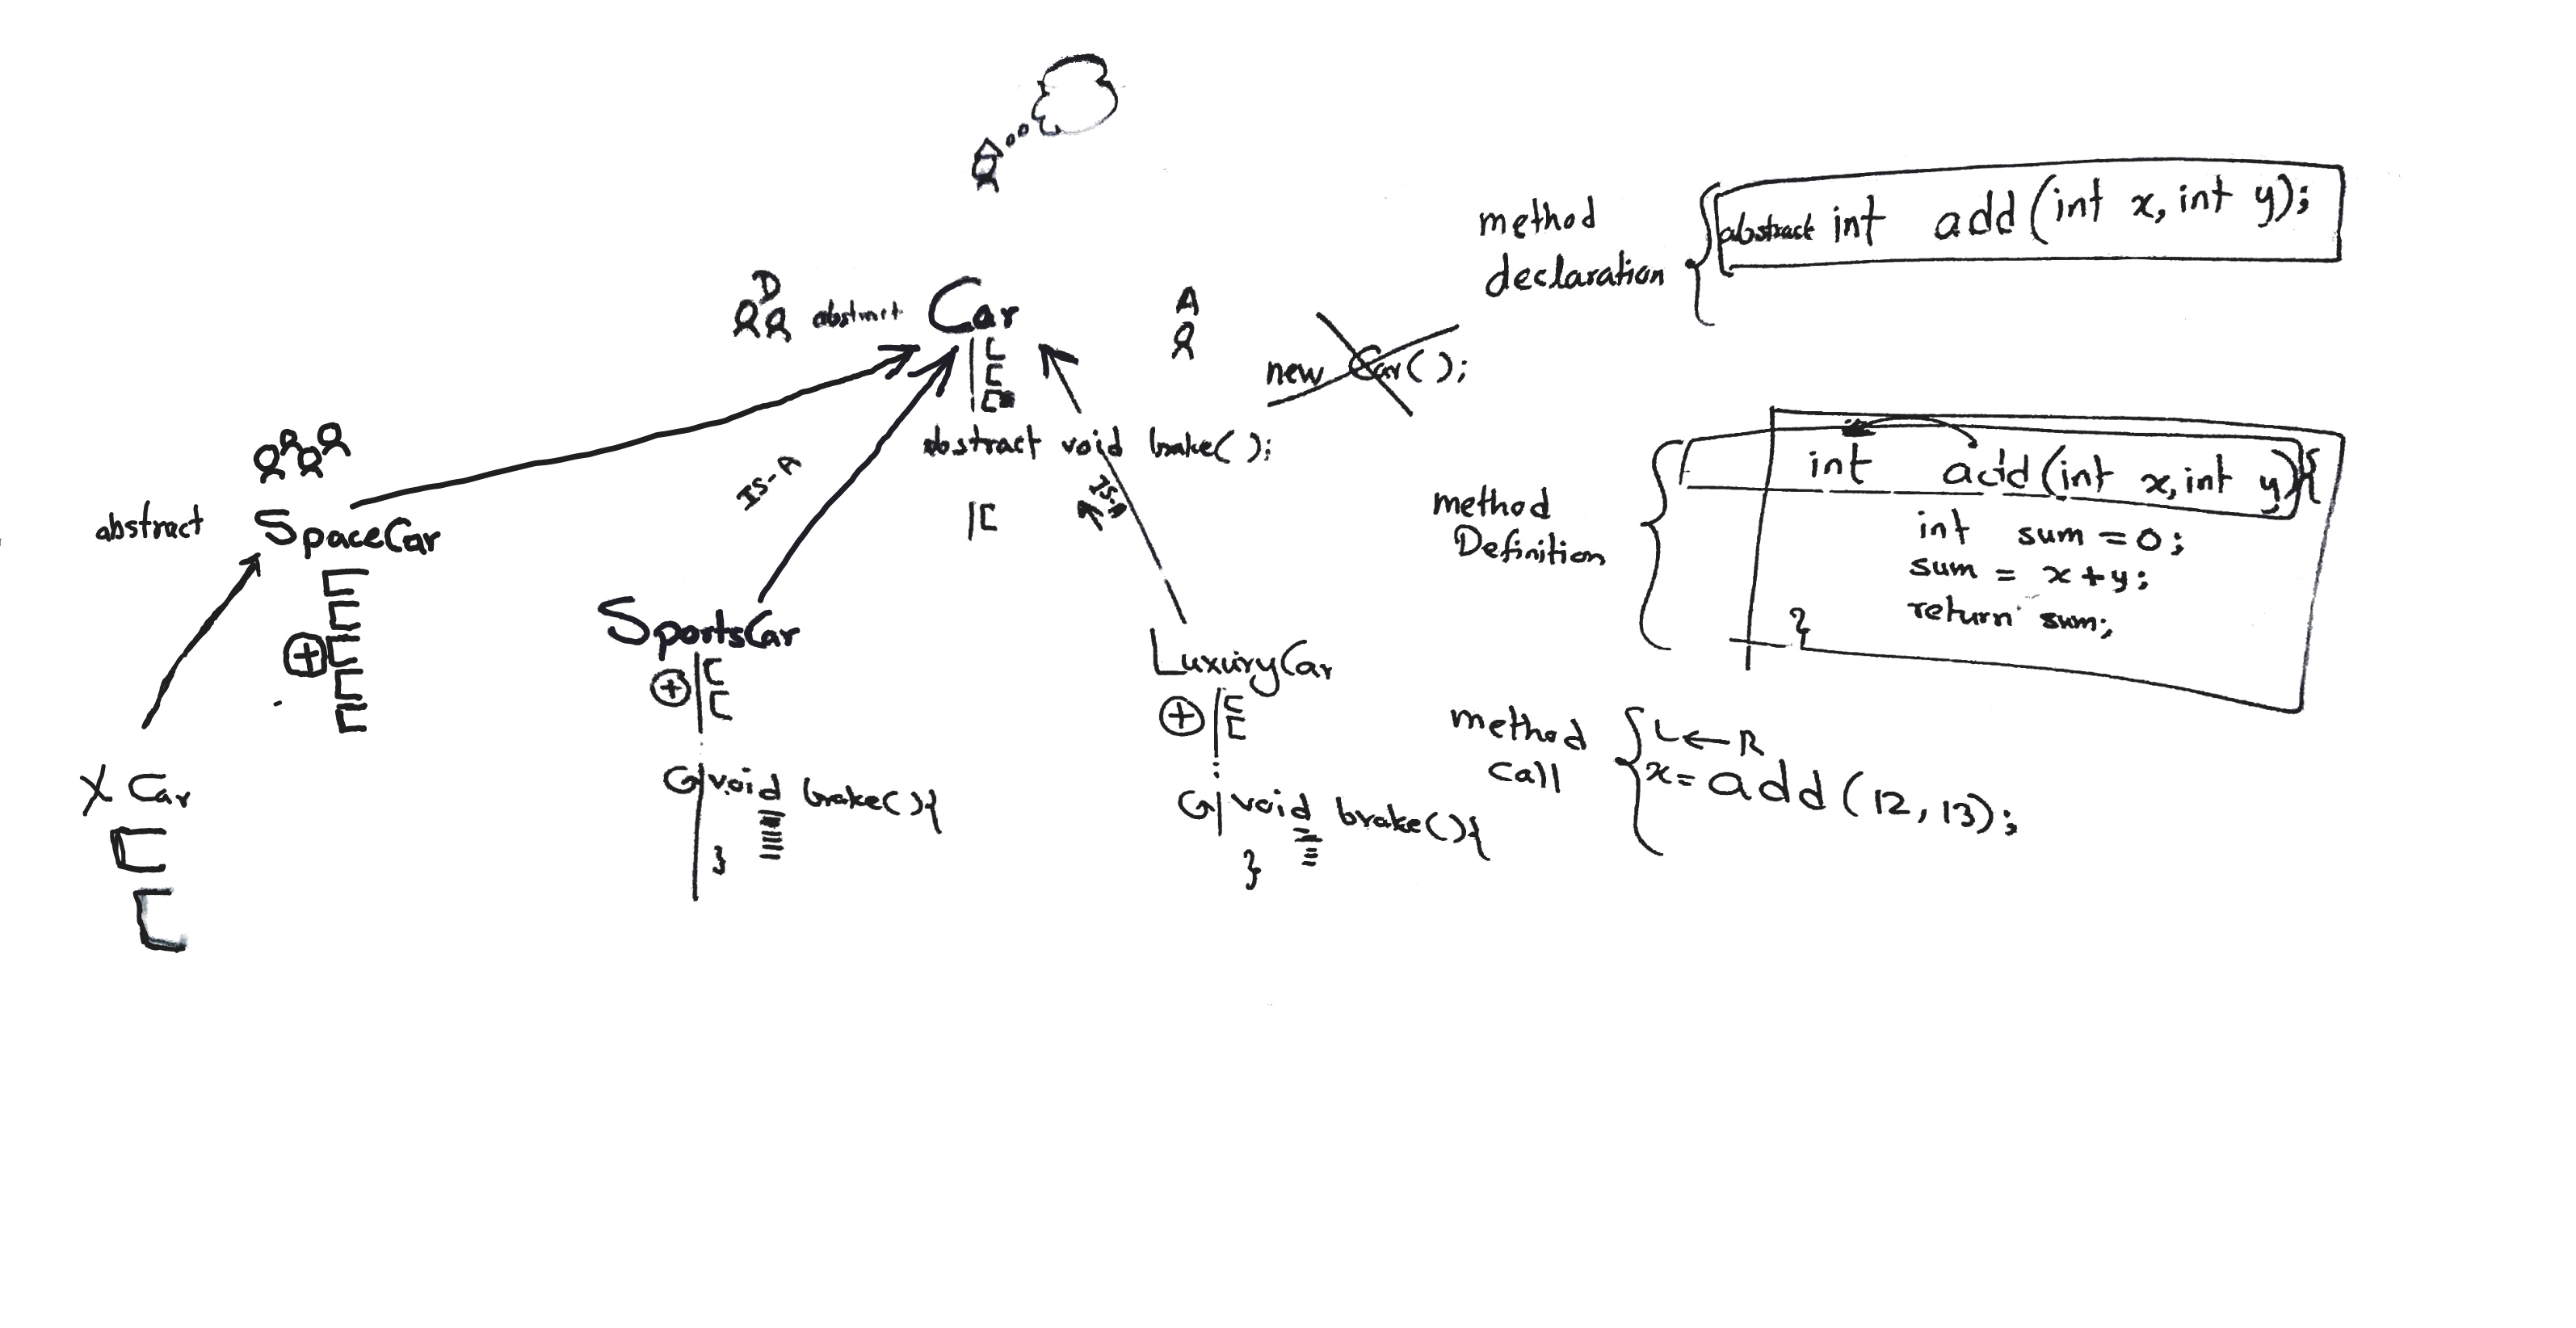 D
abstract Car
A
new Car();
abstract void brake();
IS-A
IS-A
abstract
SpaceCar
X Car
SportsCar
void brake(){
}
LuxuryCar
void brake(){
}
method
declaration
abstract int add(int x, int y);
method
Definition
int add(int x, int y){
int sum = 0;
sum = x+y;
return sum;
}
method
call
L ← R
x = add(12, 13);